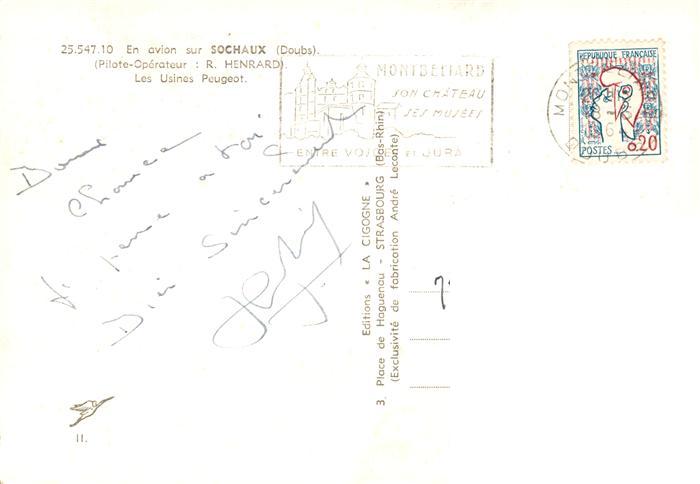 25.547.10 En avion sur SOCHAUX (Doubs).
(Pilote-Opérateur : R. HENRARD).
Les Usines Peugeot.
MONTBELIARD
SON CHÂTEAU
SES MUSÉES
ENTRE VOSGES ET JURA
RÉPUBLIQUE FRANÇAISE
POSTES 0,20
Bonne
Chance
à toi
Sincèrement
Editions « LA CIGOGNE »
3, Place de Haguenau - STRASBOURG (Bas-Rhin)
(Exclusivité de fabrication André Leconte)
II.